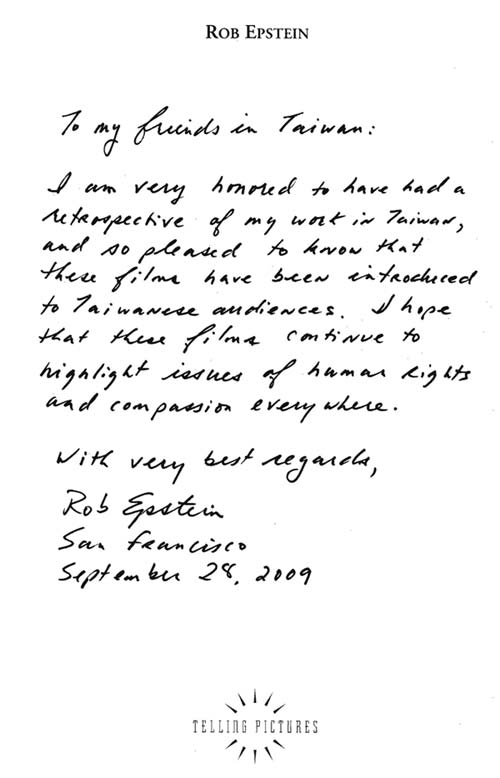 ROB EPSTEIN
To my friends in Taiwan:
I am very honored to have had a
retrospective of my work in Taiwan,
and so pleased to know that
these films have been introduced
to Taiwanese audiences. I hope
that these films continue to
highlight issues of human rights
and compassion everywhere.
With very best regards,
Rob Epstein
San Francisco
September 28, 2009
TELLING PICTURES